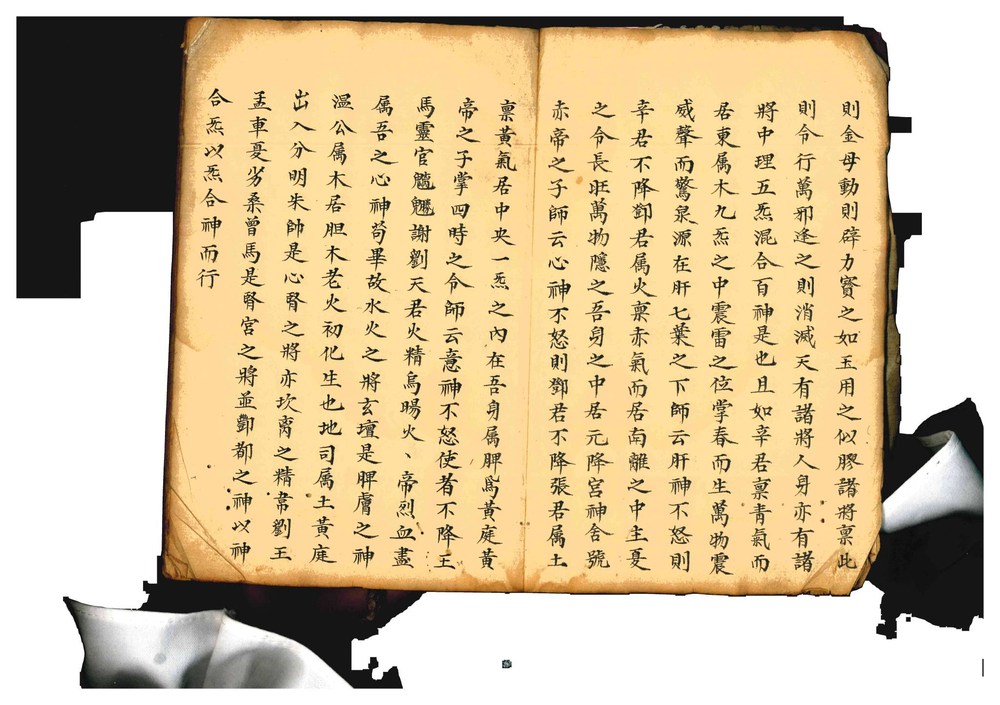 則金母動則辟力寳之如玉用之似膠諸將禀此
則令行萬邪逢之則消滅天有諸將人身亦有諸
將中理五炁混合百神是也且如辛君禀青氣而
居東属木九炁之中震雷之位掌春而生萬物震
威聲而驚泉源在肝七葉之下師云肝神不怒則
辛君不降鄧君属火禀赤氣而居南離之中主夏
之令長旺萬物隱之吾身之中居元降宮神舍號
赤帝之子師云心神不怒則鄧君不降張君属土
禀黃氣居中央一炁之內在吾身属脾爲黃庭黃
帝之子掌四時之令師云意神不怒使者不降王
馬靈官謝劉天君火精烏暘火、帝烈血盡
属吾之心神苟畢故水火之將玄壇是脾膚之神
溫公属木居胆木老火初化生也地司属土黃庭
出入分明朱帥是心腎之將亦坎离之精常劉王
孟車夏劣桑曾馬是腎宮之將並酆都之神以神
合炁以炁合神而行